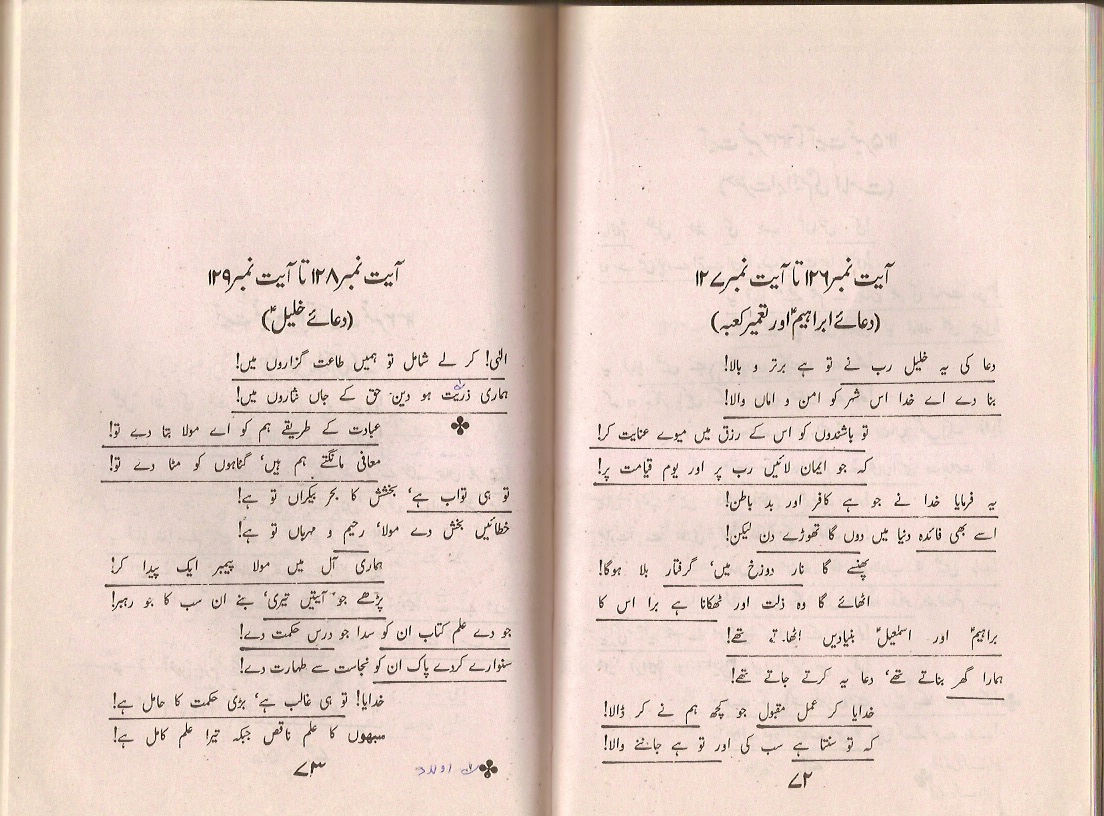 آیت نمبر ۱۲۶ تا آیت نمبر ۱۲۷
(دعائے ابراہیمؑ اور تعمیر کعبہ)
دعا کی یہ خلیل رب نے تو ہے برتر و بالا!
بنا دے اے خدا اس شہر کو امن و اماں والا!
تو باشندوں کو اس کے رزق میں میوے عنایت کر!
کہ جو ایمان لائیں رب پر اور یوم قیامت پر!
یہ فرمایا خدا نے جو ہے کافر اور بد باطن!
اسے بھی فائدہ دنیا میں دوں گا تھوڑے دن لیکن!
پھنسے گا نار دوزخ میں، گرفتار بلا ہوگا!
اٹھائے گا وہ ذلت اور ٹھکانا ہے برا اس کا
براہیمؑ اور اسمٰعیلؑ بنیادیں اٹھاتے تھے!
ہمارا گھر بناتے تھے، دعا یہ کرتے جاتے تھے!
خدایا کر عمل مقبول جو کچھ ہم نے کر ڈالا!
کہ تو سنتا ہے سب کی اور تو ہے جاننے والا!
۷۲
آیت نمبر ۱۲۸ تا آیت نمبر ۱۲۹
(دعائے خلیلؑ)
الٰہی! کر لے شامل تو ہمیں طاعت گزاروں میں!
ہماری ذریت ہو دین حق کے جاں نثاروں میں!
عبادت کے طریقے ہم کو اے مولا بتا دے تو!
معافی مانگتے ہم ہیں، گناہوں کو مٹا دے تو!
تو ہی تواب ہے، بخشش کا بحر بیکراں تو ہے!
خطائیں بخش دے مولا، رحیم و مہرباں تو ہے!
ہماری آل میں مولا پیمبر ایک پیدا کر!
پڑھے جو آیتیں تیری، بنے ان سب کا جو رہبر!
جو دے علم کتاب ان کو سدا جو درس حکمت دے!
سنوارے کردے پاک ان کو نجاست سے طہارت دے!
خدایا! تو ہی غالب ہے، بڑی حکمت کا حامل ہے!
سبھوں کا علم ناقص جبکہ تیرا علم کامل ہے!
اولاد
۷۳